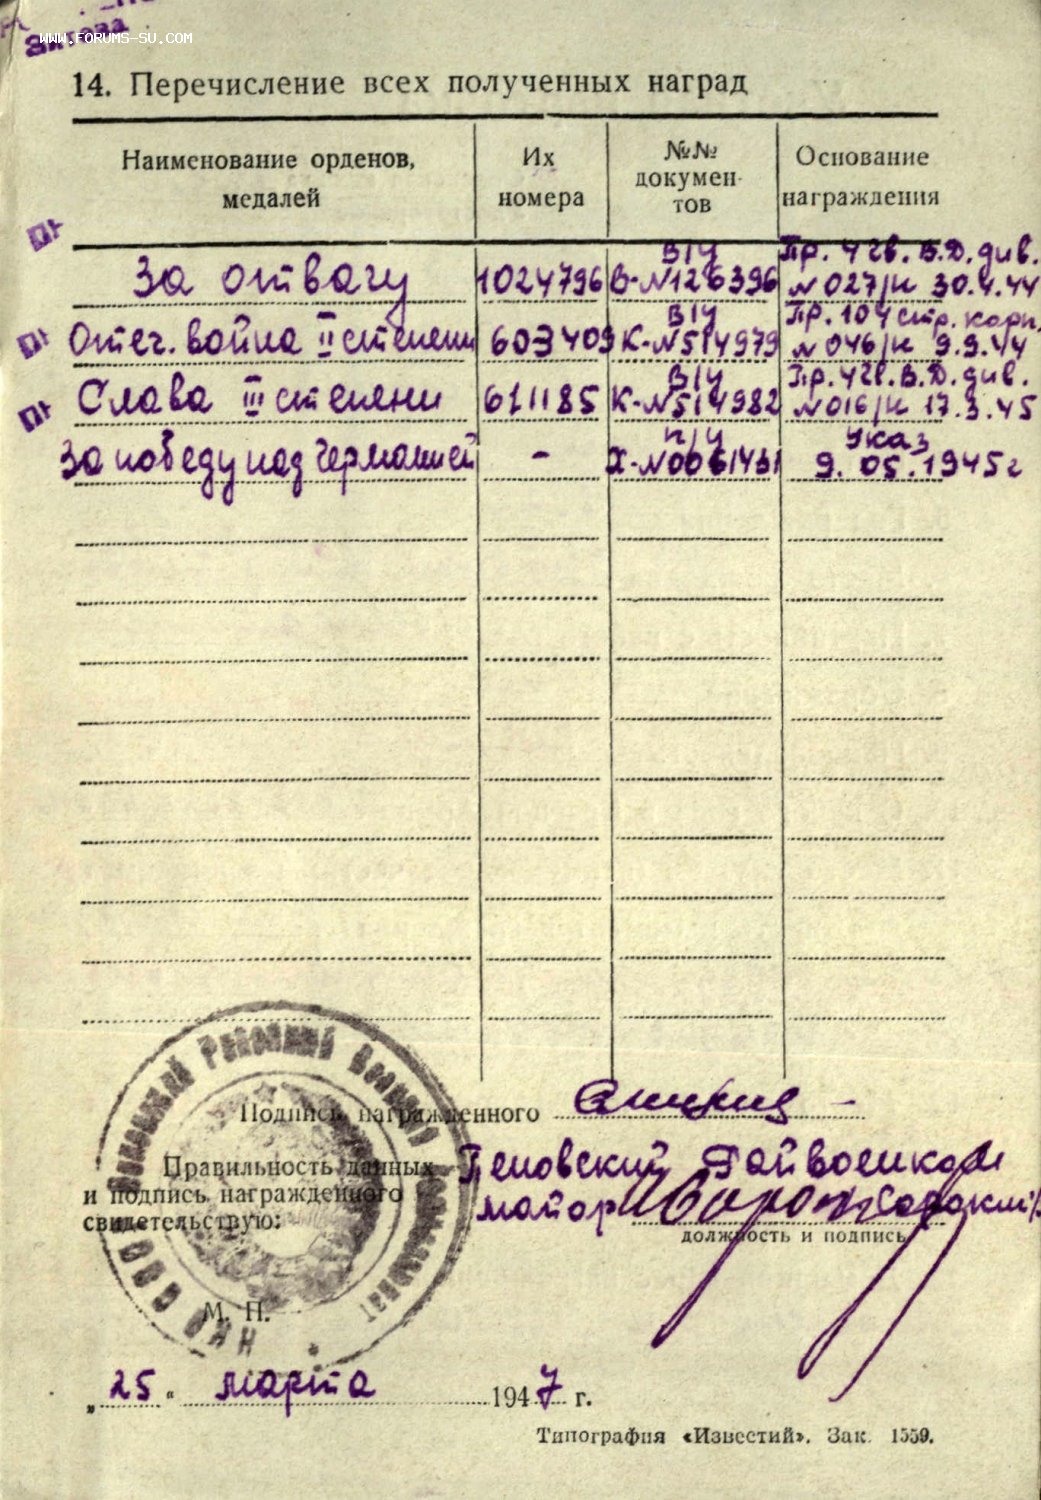 Зитова
www.FORUMS-SU.COM
14. Перечисление всех полученных наград
Наименование орденов, медалей
Их номера
№№ документов
Основание награждения
За отвагу 1024796 В/у В-№126396 Пр. 4 гв. В.Д. див. №027/н 30.4.44
Отеч. война II степени 603409 В/у К-№514979 Пр. 104 стр. корп. №046/н 9.9.44
Слава III степени 611185 В/у К-№514982 Пр. 4 гв. В.Д. див. №016/н 17.3.45
За победу над Германией - п/у Х-№0061431 Указ 9.05.1945г
Подпись награжденного
Правильность данных
и подпись награжденного
свидетельствую:
майор
должность и подпись
М. П.
„25“ марта 1947 г.
Типография «Известий». Зак. 1559.